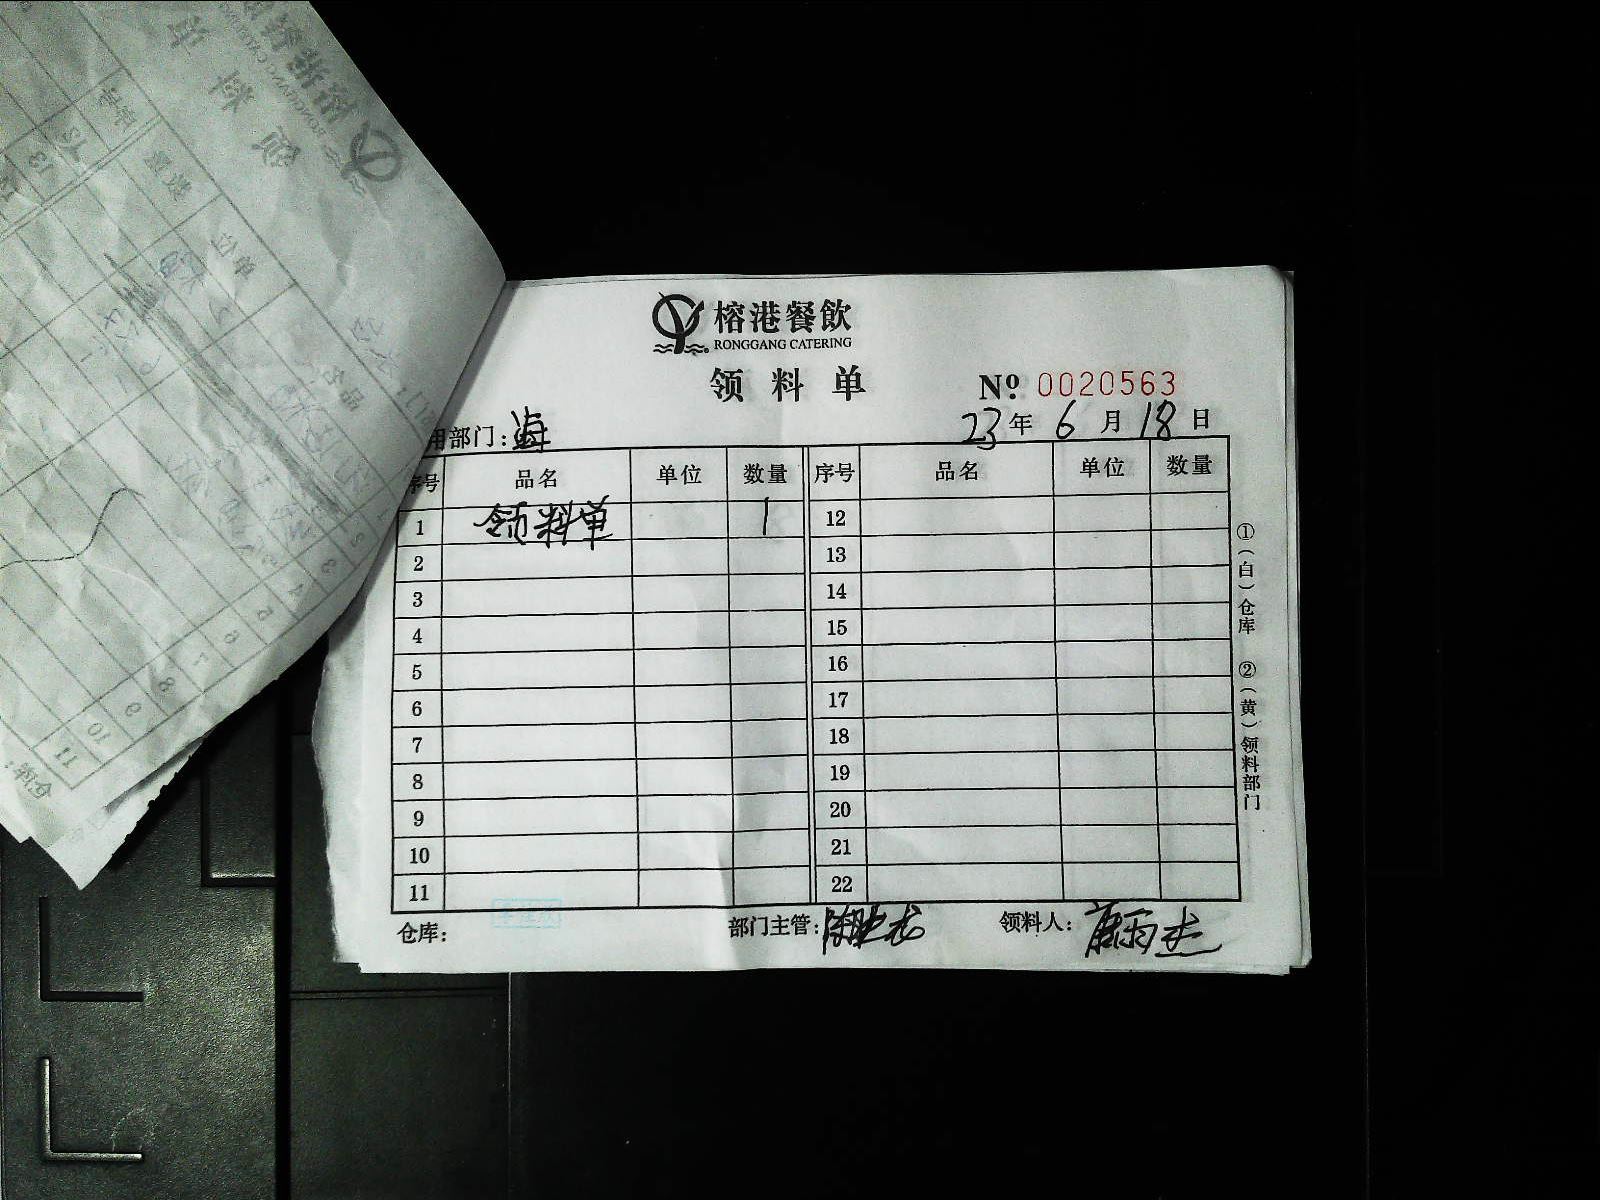 榕港餐飲
RONGGANG CATERING
领料单
№ 0020563
用部门:海
23年6月18日
序号 品名 单位 数量 序号 品名 单位 数量
1 领料单 1 12
2 13
3 14
4 15
5 16
6 17
7 18
8 19
9 20
10 21
11 22
仓库: 部门主管: 领料人:
①(白)仓库 ②(黄)领料部门